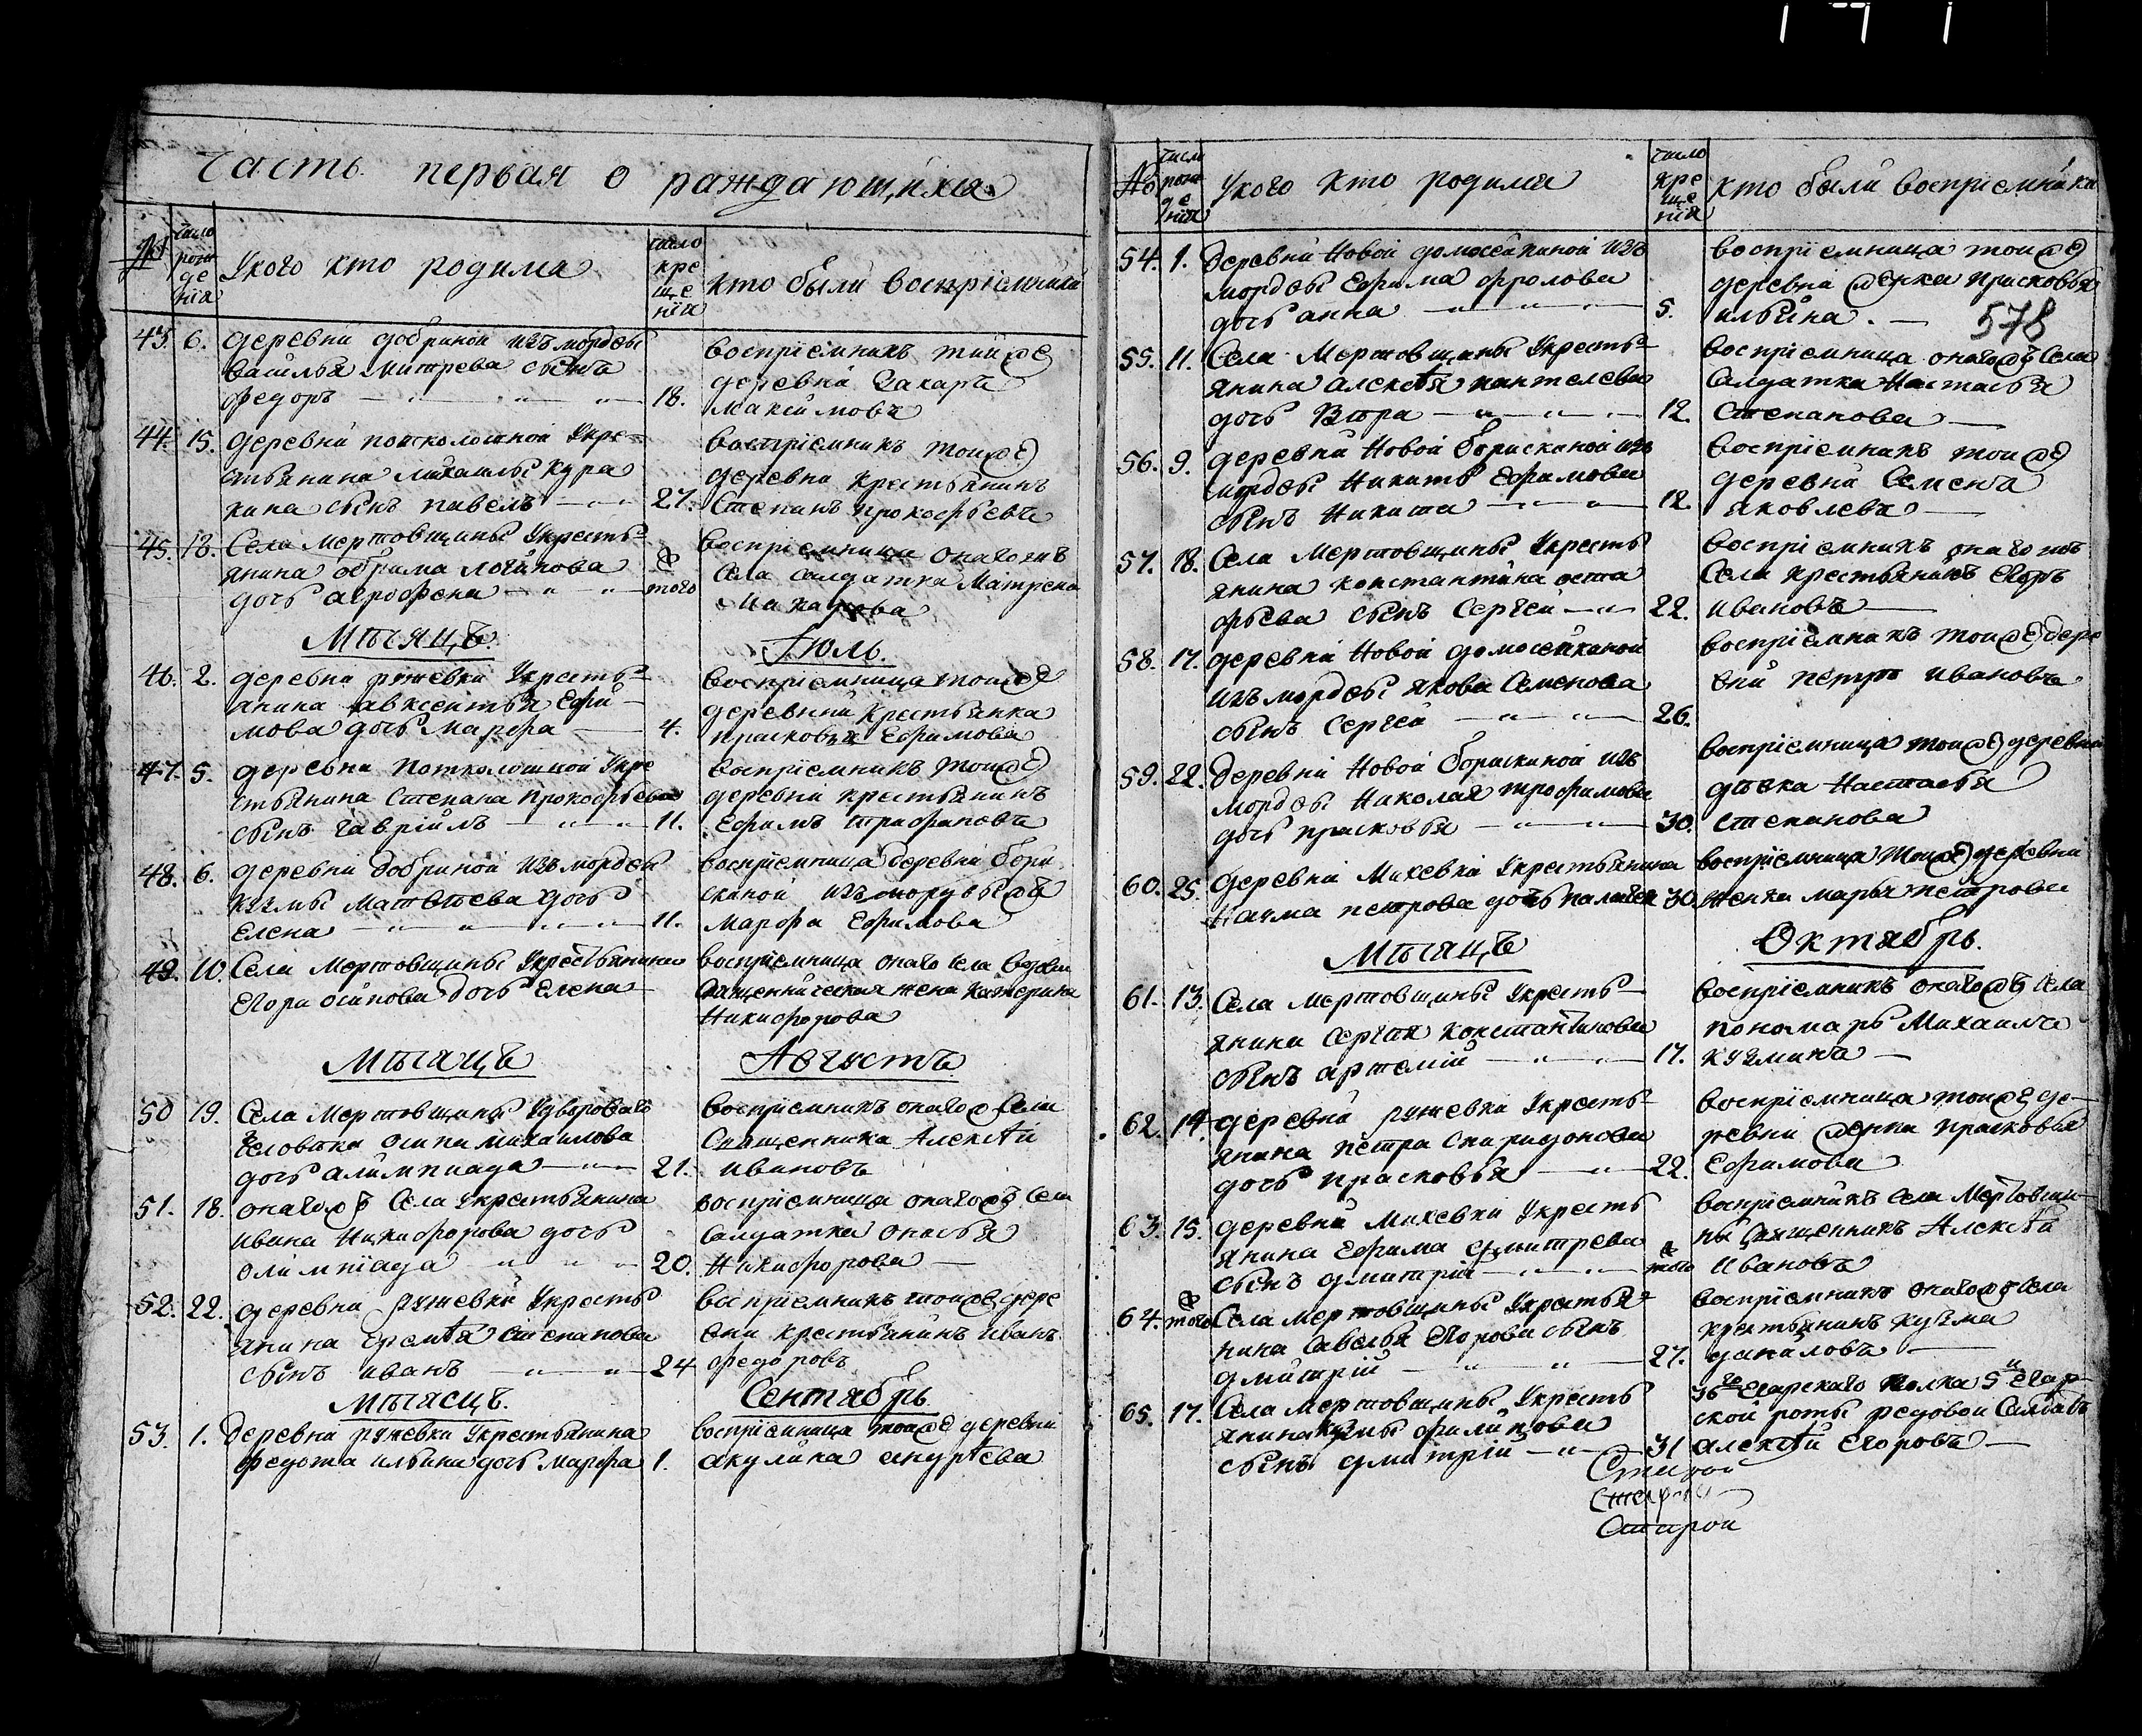 Часть первая о раждающихся
№
число рождения
У кого кто родился
число крещения
кто были воспріемники
43. 6. деревни добриной изъ мордвы
Василья Митрева сынъ
Федоръ 18.
воспріемникъ тойже
деревни Захаръ
Максимовъ
44. 15. деревни потколошной Укре-
стьянина михаилы кура
кина сынъ павелъ 27.
воспріемникъ тойже
деревни крестьянинъ
Степанъ прокофьевъ
45. 18. Села Мертовщины Укресть-
янина ефрима логинова
дочь агрофена того
воспріемница онагожъ
Села солдатка Матрена
Мѣсяцъ Іюль.
46. 2. деревни ружевки Укресть-
янина авксентья Ефи-
мова дочь Марфа 4.
воспріемница тойже
деревни крестьянка
прасковья Ефимова
47. 5. деревни потколошной Укре
стьянина Степана прокофьева
сынъ гавріилъ 11.
воспріемникъ тойже
деревни крестьянинъ
Ефимъ трифановъ
48. 6. деревни добриной изъ мордвы
кузмы Матвѣева дочь
Елена 11.
воспріемница деревни бори
скиной изъ мордвы
Марфа Ефимова
49. 10. Села Мертовщины Укрестьянина
Егора осипова дочь Елена
воспріемница онаго села вдова
Священническая жена катерина
Никифорова
Мѣсяцъ Августъ
50 19. Села Мертовщины Удвороваго
человѣка осипа михаилова
дочь алимпиада 21.
воспріемникъ онагожъ села
Священника Алексѣй
ивановъ
51. 18. онагожъ Села Укрестьянина
ивана Никифорова дочь
олимпіада 20.
воспріемница онагожъ села
Салдатка
Никифорова
52. 22. деревни ружевки Укресть
янина еремѣя степанова
сынъ иванъ 24
воспріемникъ тойже дере
вни крестьянинъ иванъ
федоровъ
Мѣсяцъ. Сентябрь
53. 1. деревни ружевки Укрестьянина
федота ильина дочь Марфа 1.
воспріемница тойже деревни
акулина
№
число рождения
У кого кто родился
число крещения
кто были воспріемники
578
54. 1. деревни Новой домосейкиной изъ
мордвы Ефима фролова
дочь анна 5.
воспріемница тойже
деревни женка прасковья
ильина.
55. 11. Села Мертовщины Укресть-
янина алексѣя пантелева
дочь Вѣра 12.
воспріемница онагожъ Села
Салдатка Настасья
Степанова
56. 9. деревни Новой борискиной изъ
мордвы Никиты Ефимова
сынъ Никита 12.
воспріемникъ тойже
деревни Семенъ
яковлевъ
57. 18. Села Мертовщины Укресть
янина константина оста
фьева сынъ Сергей 22.
воспріемникъ онагожъ
Села крестьянинъ Егоръ
ивановъ
58. 17. деревни Новой домосейкиной
изъ мордвы якова Семенова
сынъ Сергей 26.
воспріемникъ тойже дере
вни петръ ивановъ
59. 22. деревни Новой борискиной изъ
мордвы Николая трофимова
дочь прасковья 30.
воспріемница тойже деревни
дѣвка Настасья
степанова
60. 25. деревни Михевки Укрестьянина
Наума петрова дочь палагея 30
воспріемница тойже деревни
женка марья петрова
Мѣсяцъ Октябрь.
61. 13. Села Мертовщины Укресть-
янина Сергѣя константинова
сынъ артемій 17.
воспріемникъ онагожъ Села
пономарь Михаилъ
кузминъ
62. 14. деревни ружевки Укресть-
янина петра спиридонова
дочь прасковья 22.
воспріемница тойже де-
ревни женка прасковья
Ефимова
63. 15. деревни Михевки Укресть
янина Ефима дмитрева
сынъ дмитрій того
воспріемникъ Села Мертовщи-
ны Священникъ Алексѣй
ивановъ
64. того Села Мертовщины Укрестья-
нина Савелья Егорова сынъ
дмитрій 27.
воспріемникъ онагожъ Села
крестьянинъ кузма
даниловъ
65. 17. Села Мертовщины Укресть
янина кузмы филипова
сынъ дмитрій 31
36го Егарскаго полка 5й Егар-
ской роты редовой Салдатъ
алексѣй Егоровъ
Старой
Старой
Старой